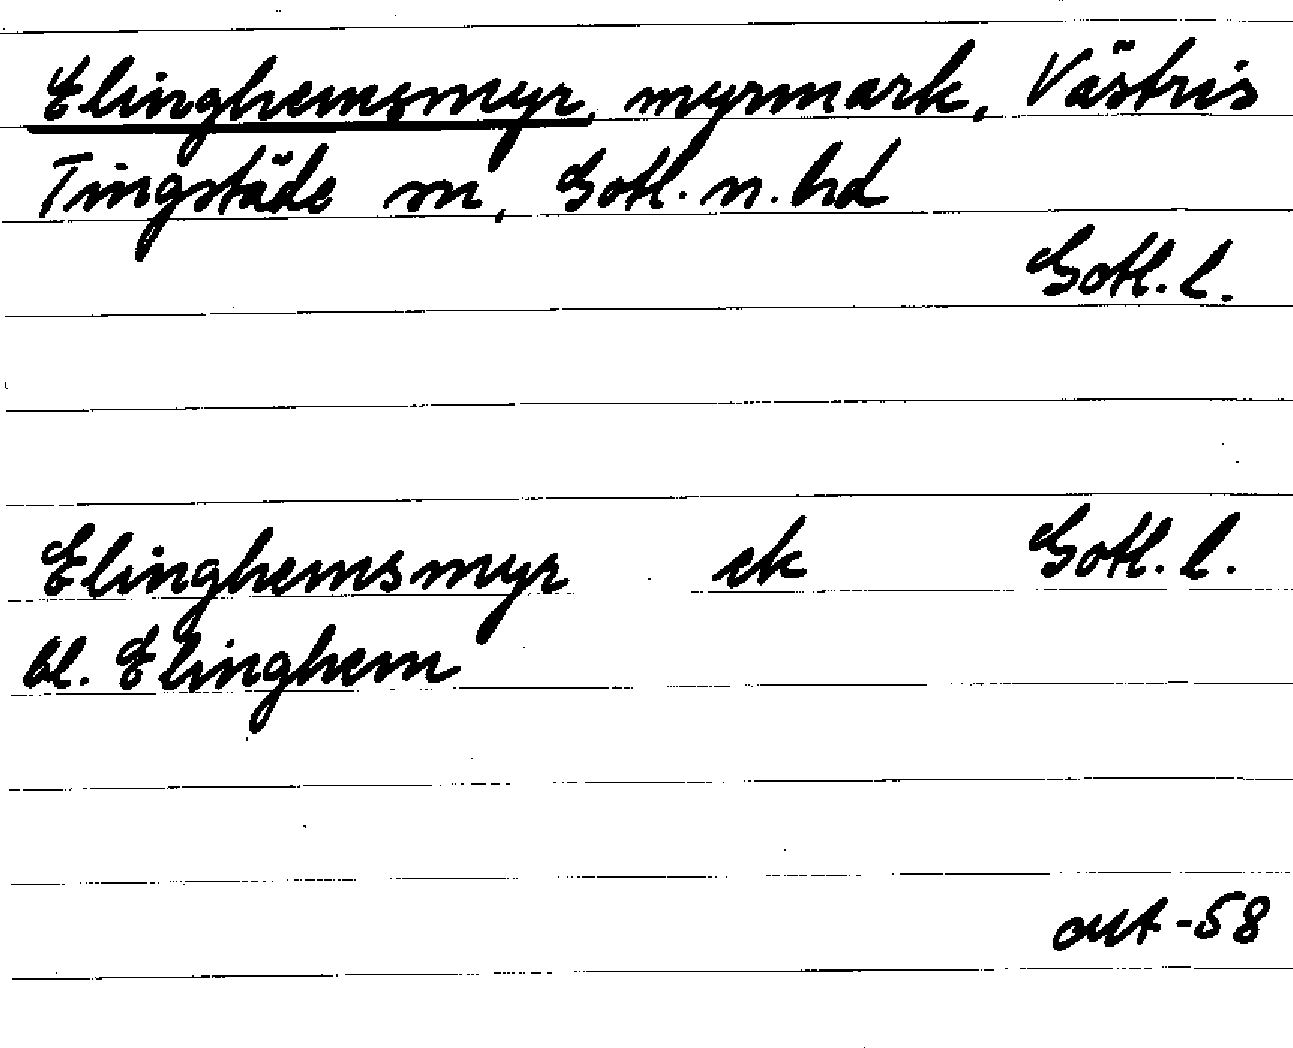 Elinghemsmyr, myrmark, Västris
Tingstäde sn, Gotl. n. hd
Gotl. l.
Elinghemsmyr ek Gotl. l.
bl. Elinghem
-58